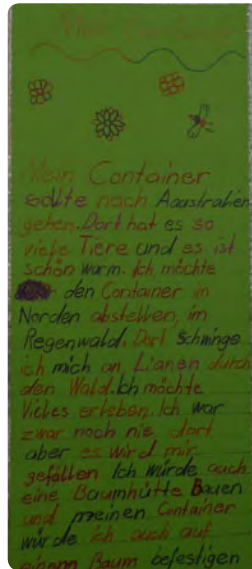 Mein Container
Mein Container
sollte nach Aaustralien
gehen. Dort hat es so
viele Tiere und es ist
schön warm. Ich möchte
den Container in
Norden abstellen, im
Regenwald. Dort schwinge
ich mich an Lianen durch
den Wald. Ich möchte
Vieles erleben. Ich war
zwar noch nie dort
aber es wird mir
gefallen Ich würde auch
eine Baumhütte Bauen
und meinen Container
würde ich auch auf
einem Baum befestigen